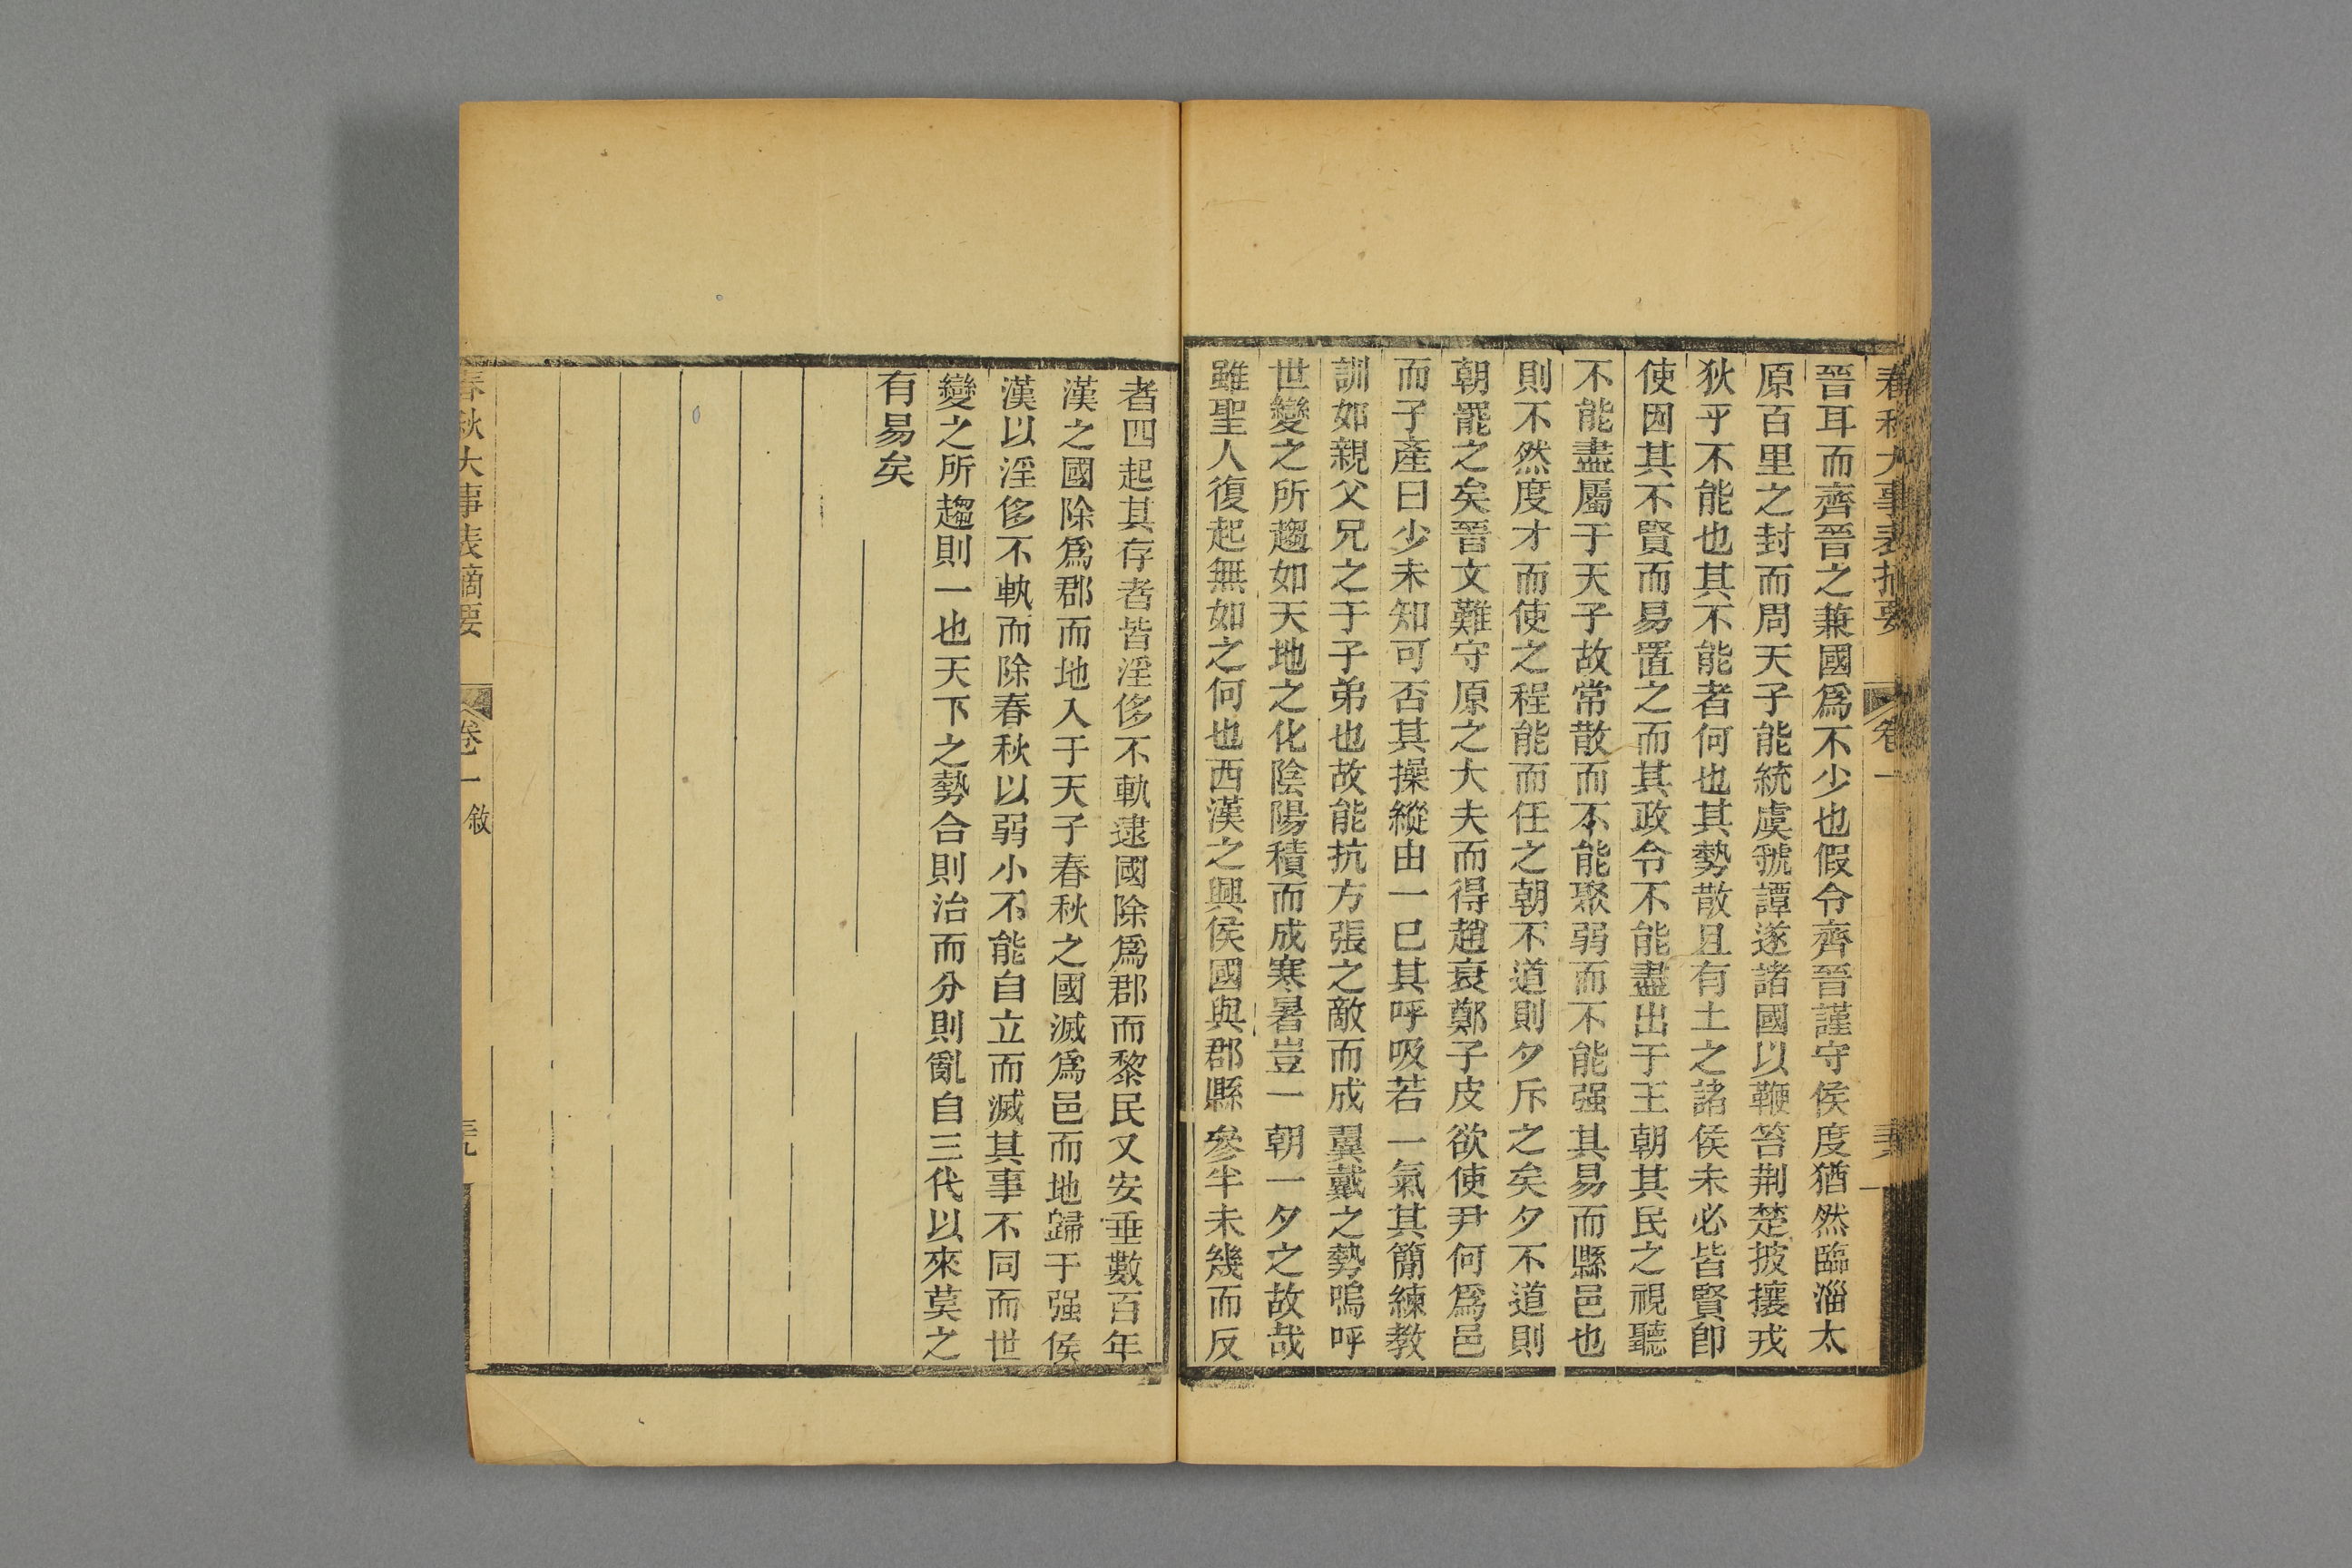 春秋大事表摘要 卷一
晉耳而齊晉之兼國爲不少也假令齊晉謹守侯度猶然臨淄太
原百里之封而問天子能統虞虢譚遂諸國以鞭笞荆楚披攘戎
狄乎不能也其不能者何也其勢散且有土之諸侯未必皆賢卽
使因其不賢而易置之而其政令不能盡出于王朝其民之視聽
不能盡屬于天子故常散而不能聚弱而不能强其易而縣邑也
則不然度才而使之程能而任之朝不道則夕斥之矣夕不道則
朝罷之矣晉文難守原之大夫而得趙衰鄭子皮欲使尹何爲邑
而子產曰少未知可否其操縱由一已其呼吸若一氣其簡練教
訓如親父兄之于子弟也故能抗方張之敵而成翼戴之勢嗚呼
世變之所趨如天地之化陰陽積而成寒暑豈一朝一夕之故哉
雖聖人復起無如之何也西漢之興侯國與郡縣參半未幾而反
者四起其存者皆淫侈不軌逮國除爲郡而黎民又安垂數百年
漢之國除爲郡而地入于天子春秋之國滅爲邑而地歸于强侯
漢以淫侈不軌而除春秋以弱小不能自立而滅其事不同而世
變之所趨則一也天下之勢合則治而分則亂自三代以來莫之
有易矣
春秋大事表摘要 卷一 敘